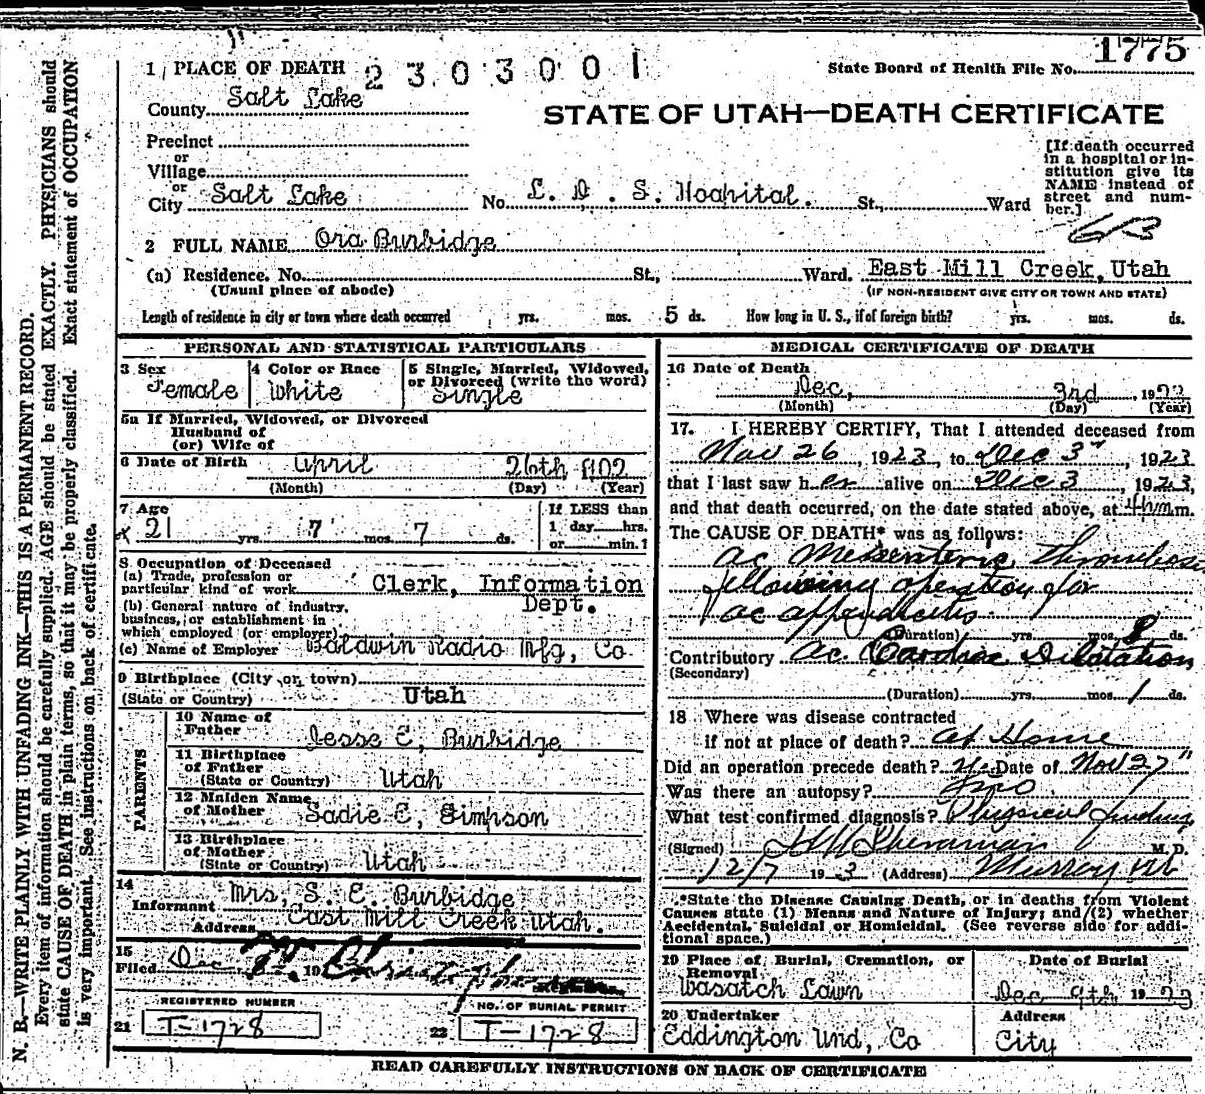 1775
1 PLACE OF DEATH 2303001 State Board of Health File No.
County Salt Lake
STATE OF UTAH—DEATH CERTIFICATE
Precinct
or
Village
or
City Salt Lake No. L. D. S. Hospital. St., Ward
[If death occurred
in a hospital or in-
stitution give its
NAME instead of
street and num-
ber.]
613
2 FULL NAME Ora Burbidge
(a) Residence, No. St., Ward. East Mill Creek, Utah
(Usual place of abode) (IF NON-RESIDENT GIVE CITY OR TOWN AND STATE)
Length of residence in city or town where death occurred yrs. mos. 5 ds. How long in U. S., if of foreign birth? yrs. mos. ds.
PERSONAL AND STATISTICAL PARTICULARS
3 Sex
Female
4 Color or Race
White
5 Single, Married, Widowed,
or Divorced (write the word)
Single
5a If Married, Widowed, or Divorced
Husband of
(or) Wife of
6 Date of Birth April 26th,
(Month) (Day) (Year)
7 Age
21 yrs. 7 mos. 7 ds.
If LESS than
1 day hrs.
or min.?
8 Occupation of Deceased
(a) Trade, profession or
particular kind of work Clerk, Information
Dept.
(b) General nature of industry,
business, or establishment in
which employed (or employer)
(c) Name of Employer Baldwin Radio Mfg, Co
9 Birthplace (City or town)
(State or Country) Utah
PARENTS
10 Name of
Father Jesse E, Burbidge
11 Birthplace
of Father
(State or Country) Utah
12 Maiden Name
of Mother Sadie E, Simpson
13 Birthplace
of Mother
(State or Country) Utah
14
Informant Mrs, S. E. Burbidge
Address East Mill Creek Utah.
15
Filed Dec 19
REGISTERED NUMBER NO. OF BURIAL PERMIT
21 T-1728 22 T-1728
MEDICAL CERTIFICATE OF DEATH
16 Date of Death
Dec, 3rd, 1923
(Month) (Day) (Year)
17. I HEREBY CERTIFY, That I attended deceased from
Nov 26, 1923, to Dec 3", 1923
that I last saw her alive on Dec 3, 1923,
and that death occurred, on the date stated above, at m.
The CAUSE OF DEATH* was as follows:
Ac Mesenteric Thrombosis
following operation for
ac appendicitis
(Duration) yrs. mos. 8 ds.
Contributory Ac. Cardiac Dilatation
(Secondary)
(Duration) yrs. mos. 1 ds.
18 Where was disease contracted
if not at place of death? At Home
Did an operation precede death? Date of Nov 27"
Was there an autopsy? No
What test confirmed diagnosis? Physical finding
(Signed) M. D.
12/7 1923 (Address) Murray Ut
*State the Disease Causing Death, or in deaths from Violent
Causes state (1) Means and Nature of Injury; and (2) whether
Accidental, Suicidal or Homicidal. (See reverse side for addi-
tional space.)
19 Place of Burial, Cremation, or
Removal
Wasatch Lawn
Date of Burial
Dec 9th 1923
20 Undertaker
Eddington Und, Co
Address
City
READ CAREFULLY INSTRUCTIONS ON BACK OF CERTIFICATE
N. B.—WRITE PLAINLY WITH UNFADING INK—THIS IS A PERMANENT RECORD.
Every item of information should be carefully supplied. AGE should be stated EXACTLY. PHYSICIANS should
state CAUSE OF DEATH in plain terms, so that it may be properly classified. Exact statement of OCCUPATION
is very important. See instructions on back of certificate.